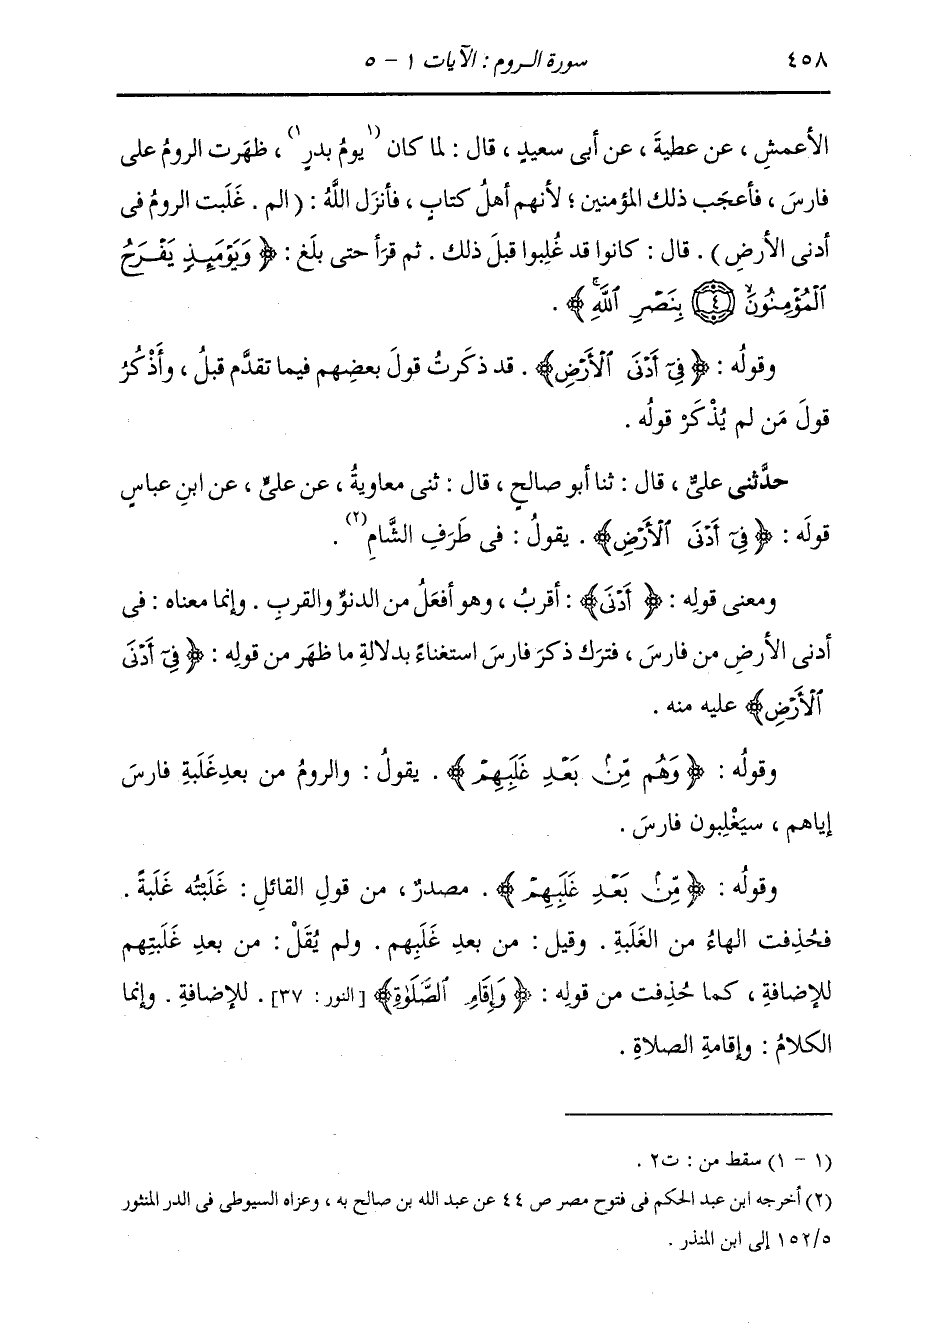 ٤٥٨ سورة الـروم : الآيات ١ - ٥
الأعمشِ ، عن عطيةَ ، عن أبى سعيدٍ ، قال : لما كان (١ يومُ بدرٍ ١) ، ظهَرت الرومُ على
فارسَ ، فأعجَب ذلك المؤمنين ؛ لأنهم أهلُ كتابٍ ، فأنزَل اللَّهُ : ( الم . غَلَبت الرومُ فى
أدنى الأرضِ ) . قال : كانوا قد غُلِبوا قبلَ ذلك . ثم قرَأ حتى بلَغ : ﴿ وَيَوْمَئِذٍ يَفْرَحُ
ٱلْمُؤْمِنُونَ ۙ (٤) بِنَصْرِ ٱللَّهِ ۚ ﴾ .
وقولُه : ﴿ فِىٓ أَدْنَى ٱلْأَرْضِ ﴾ . قد ذكَرتُ قولَ بعضِهم فيما تقدَّم قبلُ ، وأَذْكُرُ
قولَ مَن لم يُذْكَرْ قولُه .
حدَّثنى علىٌّ ، قال : ثنا أبو صالحٍ ، قال : ثنى معاويةُ ، عن علىٍّ ، عن ابنِ عباسٍ
قولَه : ﴿ فِىٓ أَدْنَى ٱلْأَرْضِ ﴾ . يقولُ : فى طَرَفِ الشَّامِ (٢) .
ومعنى قولِه : ﴿ أَدْنَى ﴾ : أقربُ ، وهو أفعَلُ من الدنوِّ والقربِ . وإنما معناه : فى
أدنى الأرضِ من فارسَ ، فترَك ذكرَ فارسَ استغناءً بدلالةِ ما ظهَر من قولِه : ﴿ فِىٓ أَدْنَى
ٱلْأَرْضِ ﴾ عليه منه .
وقولُه : ﴿ وَهُم مِّنۢ بَعْدِ غَلَبِهِمْ ﴾ . يقولُ : والرومُ من بعدِ غَلَبةِ فارسَ
إياهم ، سيَغْلِبون فارسَ .
وقولُه : ﴿ مِّنۢ بَعْدِ غَلَبِهِمْ ﴾ . مصدرٌ ، من قولِ القائلِ : غَلَبْتُه غَلَبةً .
فحُذِفت الهاءُ من الغَلَبةِ . وقيل : من بعدِ غَلَبِهم . ولم يُقَلْ : من بعدِ غَلَبتِهم
للإضافةِ ، كما حُذِفت من قولِه : ﴿ وَإِقَامِ ٱلصَّلَوٰةِ ﴾ [ النور : ٣٧ ] . للإضافةِ . وإنما
الكلامُ : وإقامةِ الصلاةِ .
(١ - ١) سقط من : ت٢ .
(٢) أخرجه ابن عبد الحكم فى فتوح مصر ص ٤٤ عن عبد الله بن صالح به ، وعزاه السيوطى فى الدر المنثور
١٥٢/٥ إلى ابن المنذر .